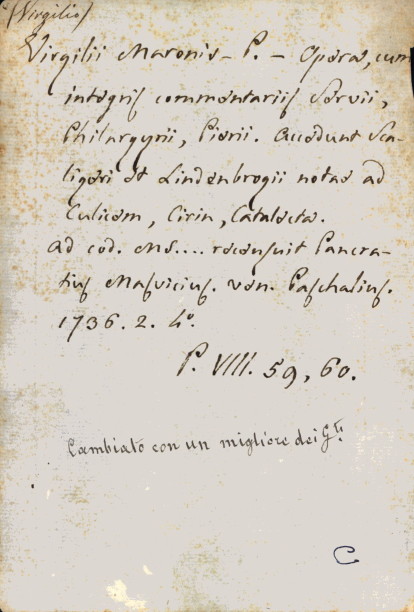 (Virgilio)
Virgilii Maronis - P. - Opera, cum
integris commentariis Servii,
Philargyrii, Pierii. Accedunt Sca-
ligeri et Lindenbrogii notae ad
Culicem, Cirin, Catalecta.
Ad cod. MS.... recensuit Pancra-
tius Masvicius. Ven. Paschalius.
1736. 2. 4°.
P. VIII. 59, 60.
Cambiato con un migliore dei G.ti
C